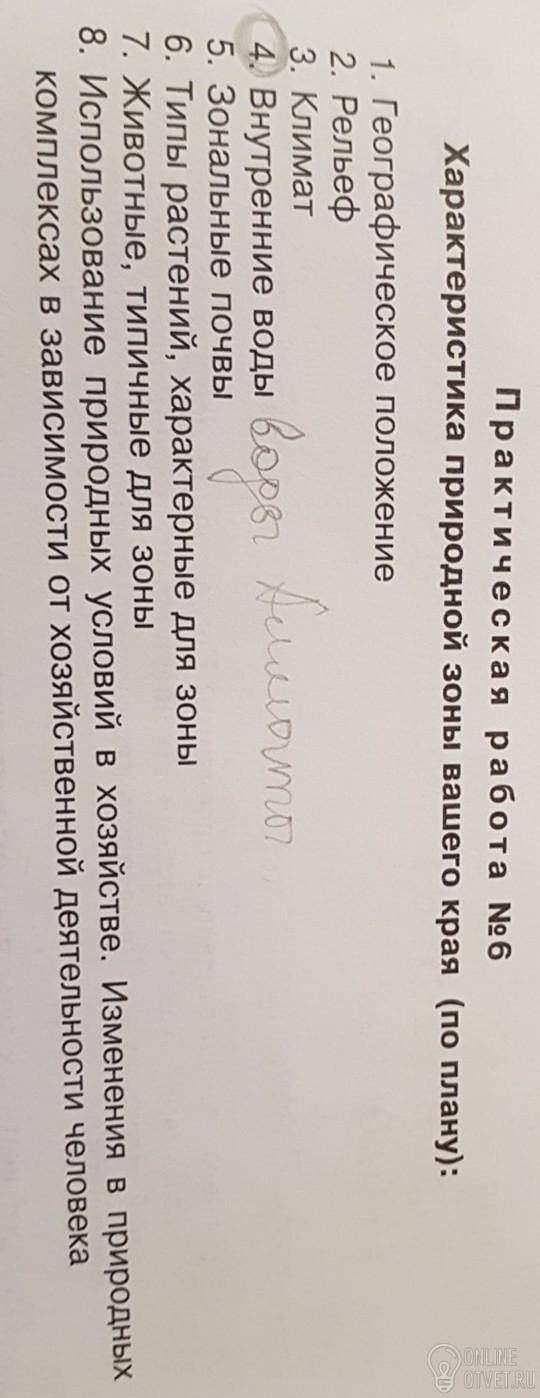 Практическая работа №6
Характеристика природной зоны вашего края (по плану):
1. Географическое положение
2. Рельеф
3. Климат
4. Внутренние воды воды
5. Зональные почвы
6. Типы растений, характерные для зоны
7. Животные, типичные для зоны
8. Использование природных условий в хозяйстве. Изменения в природных
комплексах в зависимости от хозяйственной деятельности человека
ONLINE
OTVET.RU